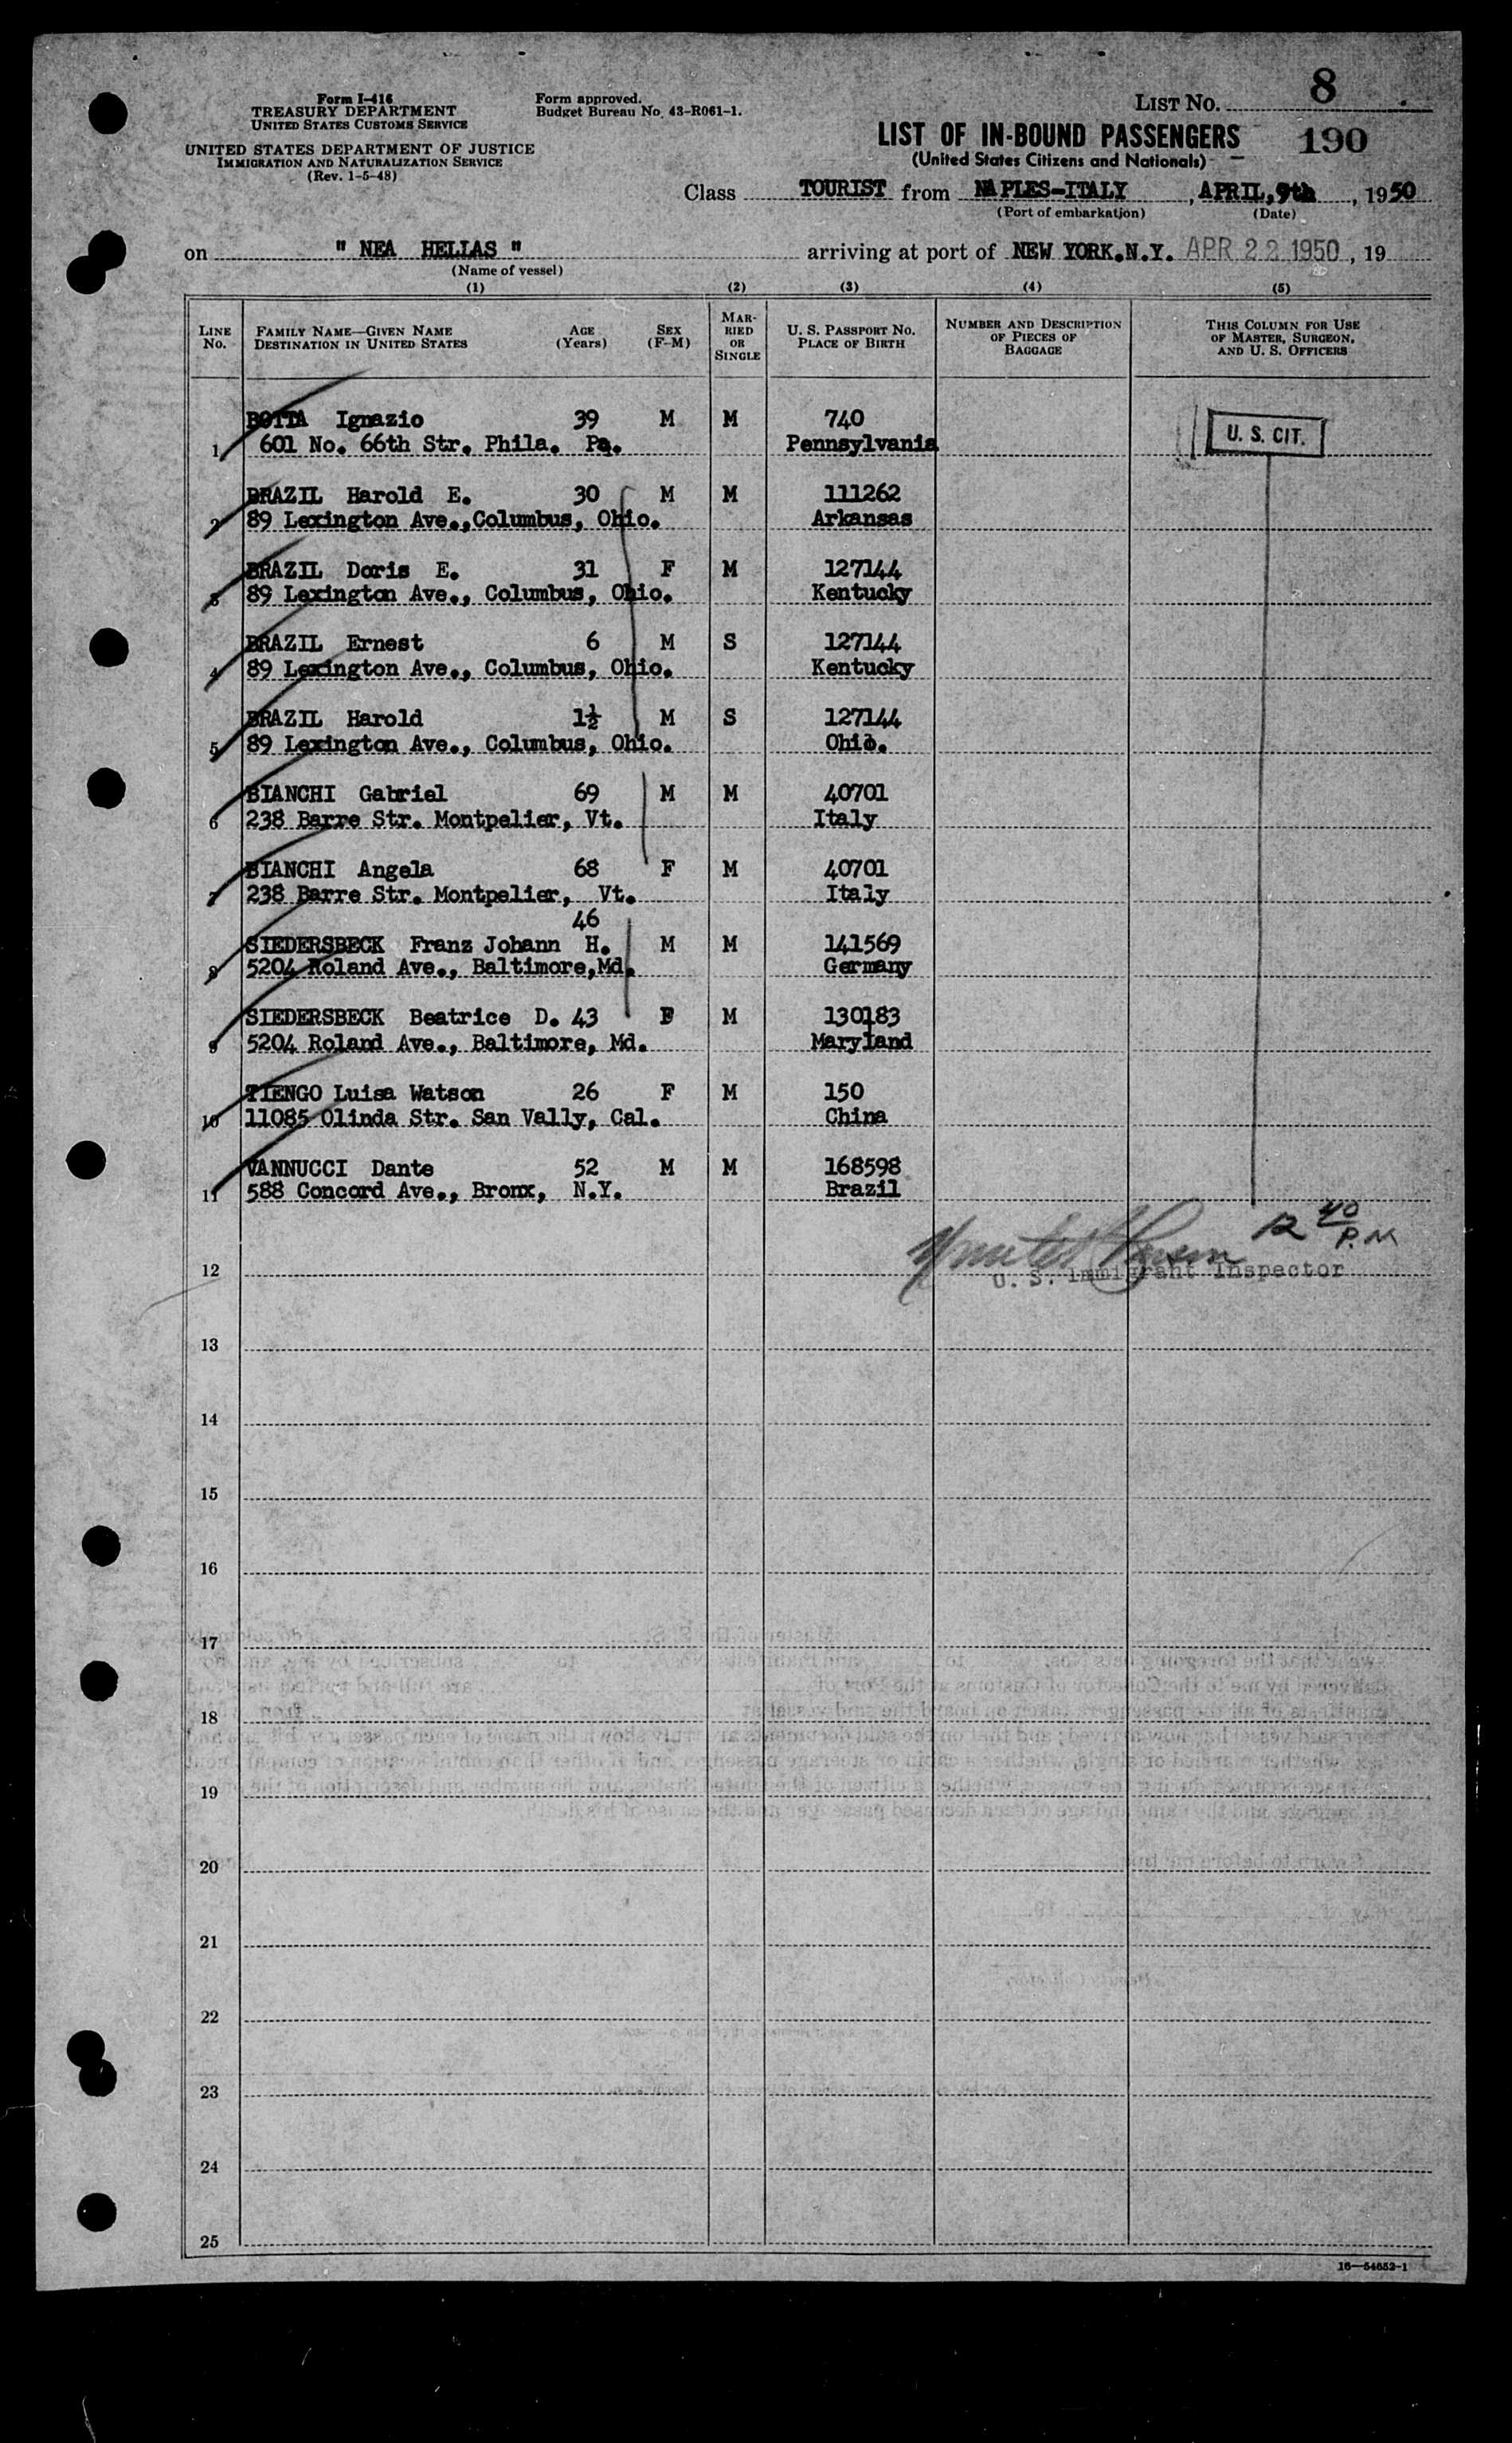 Form I-416
TREASURY DEPARTMENT
UNITED STATES CUSTOMS SERVICE
UNITED STATES DEPARTMENT OF JUSTICE
IMMIGRATION AND NATURALIZATION SERVICE
(Rev. 1-5-48)
Form approved.
Budget Bureau No. 43-R061-1.
LIST NO. 8
LIST OF IN-BOUND PASSENGERS 190
(United States Citizens and Nationals)
Class TOURIST from NAPLES-ITALY, APRIL,9th, 1950
(Port of embarkation) (Date)
on " NEA HELLAS " arriving at port of NEW YORK.N.Y. APR 22 1950, 19
(Name of vessel)
(1) (2) (3) (4) (5)
LINE No. FAMILY NAME—GIVEN NAME DESTINATION IN UNITED STATES AGE (Years) SEX (F-M) MARRIED OR SINGLE U. S. PASSPORT NO. PLACE OF BIRTH NUMBER AND DESCRIPTION OF PIECES OF BAGGAGE THIS COLUMN FOR USE OF MASTER, SURGEON, AND U. S. OFFICERS
BOTTA Ignazio 39 M M 740 U. S. CIT.
1 601 No. 66th Str. Phila. Pa. Pennsylvania
BRAZIL Harold E. 30 M M 111262
2 89 Lexington Ave.,Columbus, Ohio. Arkansas
BRAZIL Doris E. 31 F M 127144
3 89 Lexington Ave., Columbus, Ohio. Kentucky
BRAZIL Ernest 6 M S 127144
4 89 Lexington Ave., Columbus, Ohio. Kentucky
BRAZIL Harold 1½ M S 127144
5 89 Lexington Ave., Columbus, Ohio. Ohio.
BIANCHI Gabriel 69 M M 40701
6 238 Barre Str. Montpelier, Vt. Italy
BIANCHI Angela 68 F M 40701
7 238 Barre Str. Montpelier, Vt. Italy
46
SIEDERSBECK Franz Johann H. M M 141569
8 5204 Roland Ave., Baltimore,Md. Germany
SIEDERSBECK Beatrice D. 43 F M 130183
9 5204 Roland Ave., Baltimore, Md. Maryland
TIENGO Luisa Watson 26 F M 150
10 11085 Olinda Str. San Vally, Cal. China
VANNUCCI Dante 52 M M 168598
11 588 Concord Ave., Bronx, N.Y. Brazil
12 40 P.M
12 U. S. Immigrant Inspector
13
14
15
16
17
18
19
20
21
22
23
24
25
16—54652-1